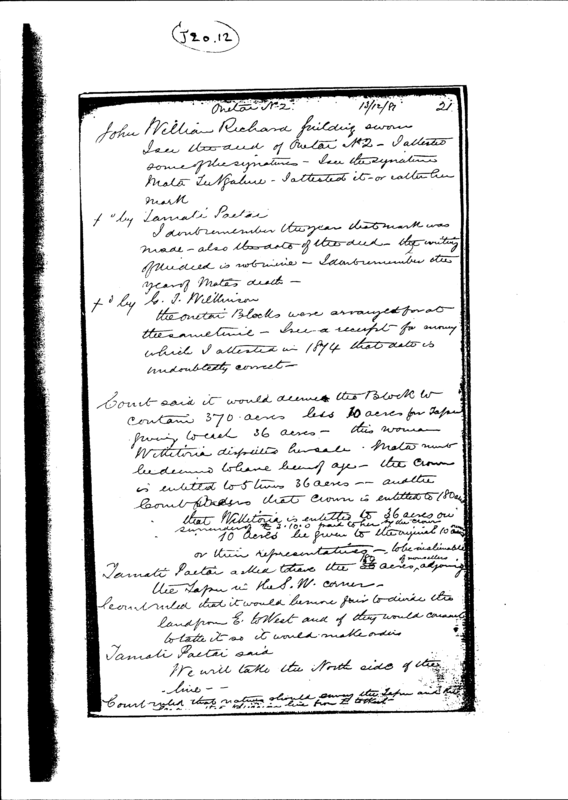 J20.12
Onetai No 2 13/12/87 21
John William Richard Guilding sworn
I see the deed of Onetai No 2 - I attested
some of the signatures - I see the signature
Mata Te Ngahue - I attested it - or rather her
mark
x d by Tamati Paetai
I dont remember the year that mark was
made - also the date of the deed - the writing
of the deed is not mine - I dont remember the
year of Mata's death -
x d by G. T. Wilkinson
the Onetai Blocks were arranged for at
the same time - I see a receipt for money
which I attested in 1874 that date is
undoubtedly correct -
Court said it would deem the Block to
contain 370 acres less 10 acres for Tapu
giving to each 36 acres - this woman
Wikitoria disputes her sale. Mata must
be deemed to have been of age - the Crown
is entitled to 5 times 36 acres - and the
Court orders that Crown is entitled to 180 acres
that Wikitoria is entitled to 36 acres on
surrendering £3.10.0 paid to her by the Crown
10 acres be given to the original 10
or their representatives - to be inalienable
of nonsellers
Tamati Paetai asked to have the acres, adjoining
the Tapu in the S.W. corner -
Court ruled that it would be more fair to divide the
land from E. to West and if they would consent
to take it so it would make orders
Tamati Paetai said
We will take the North side of the
line - -
Court ruled that natives should survey the Tapu and
line from E to West